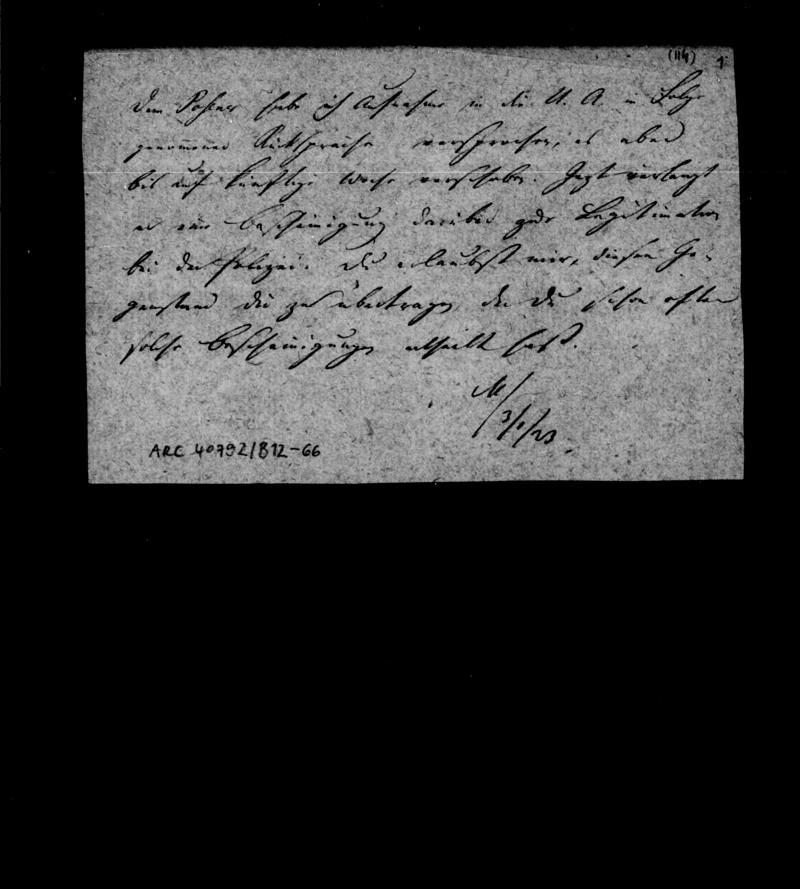 (114) 1
Dem Poster habe ich Aufnahme in die U. A. in Folge
genommener Rücksprache versprochen, es aber
bis auf künftige Woche verschoben. Jezt verlangt
er eine Bescheinigung darüber zur Legitimation
bei der Polizei. Du erlaubst mir, diesen Ge-
genstand dir zu übertragen, da Du schon öfter
solche Bescheinigungen ertheilt hast.
M/
3/1/23
ARC 40792/B12-66